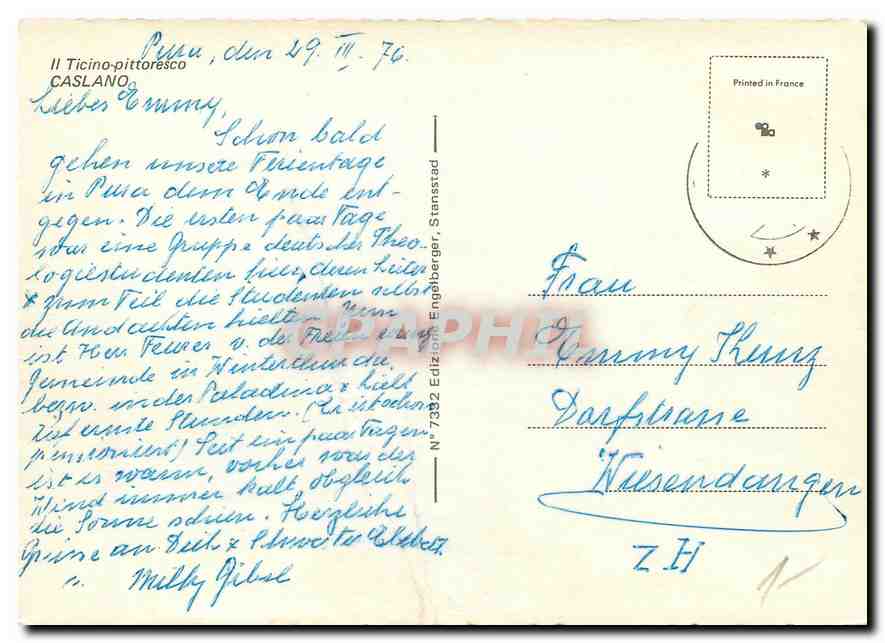 Pura, den 29. III. 76.
Il Ticino pittoresco
CASLANO
Liebes Emmy,
Schon bald
gehen unsere Ferientage
in Pura dem Ende ent-
gegen. Die ersten paar Tage
war eine Gruppe deutscher Theo-
logiestudenten hier, deren Leiter
+ zum Teil die Studenten selbst
die Andachten hielten. Nun
ist Herr Feurer v. der
Gemeinde in Winterthur die
bezw. in der + hielt
ernste Stunden. (Er ist schon
pensioniert) Seit ein paar Tagen
ist es warm, vorher war der
Wind immer kalt obgleich
die Sonne schien. Herzliche
Grüsse an Dich +
" Milky
N° 7392 Edizione Engelberger, Stansstad
Printed in France
*
Frau
Emmy Kunz
Dorfstrasse
Wiesendangen
ZH
1-
CARAPHIL